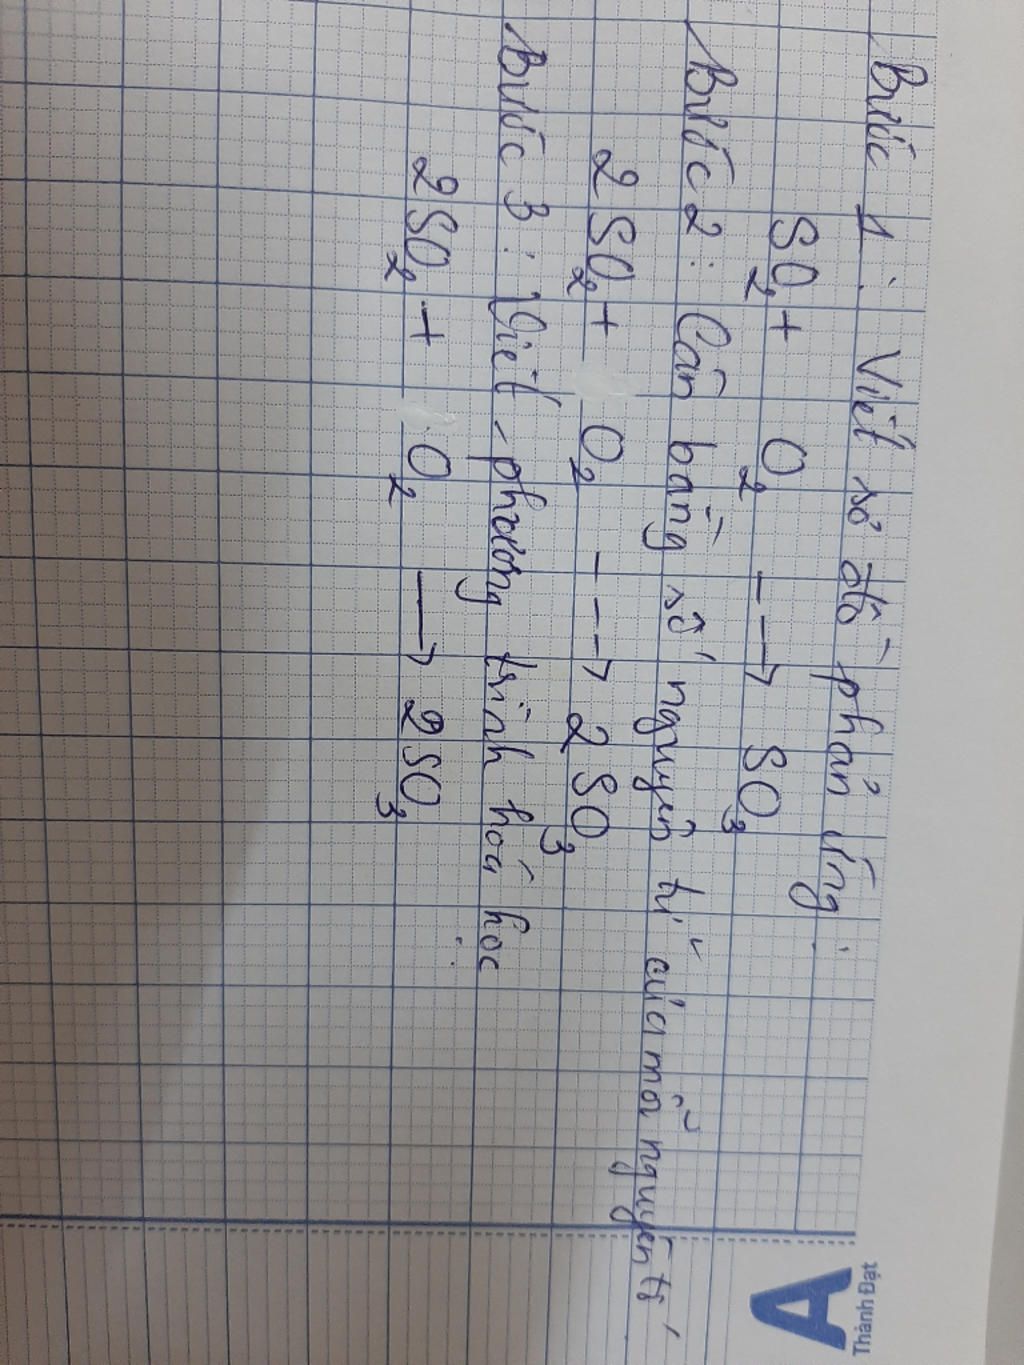 Bước 1: Viết sơ đồ phản ứng:
SO₂ + O₂ ---> SO₃
Bước 2: Cân bằng số nguyên tử của mỗi nguyên tố
2SO₂ + O₂ ---> 2SO₃
Bước 3: Viết phương trình hoá học
2SO₂ + O₂ → 2SO₃
A
Thành Đạt